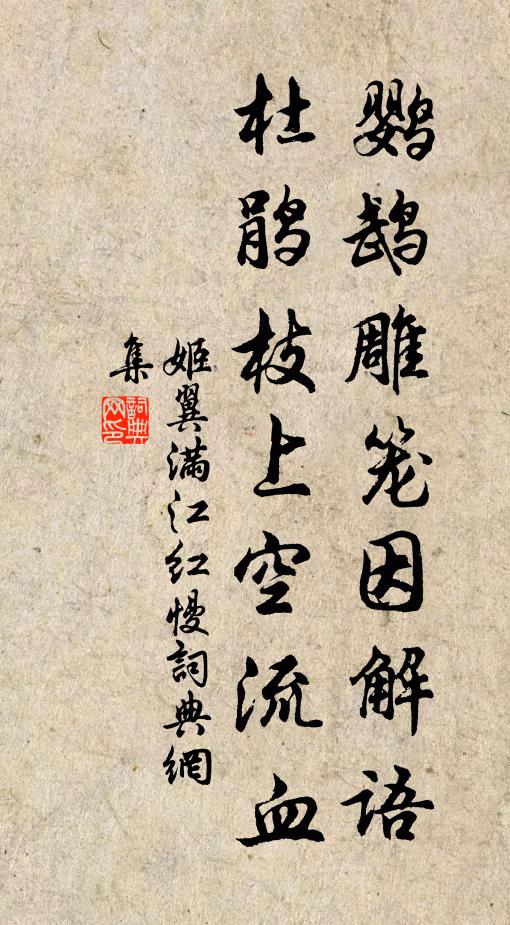 鹦鹉雕笼因解语
杜鹃枝上空流血
姬翼满江红慢詞典網
集
詞典
网印